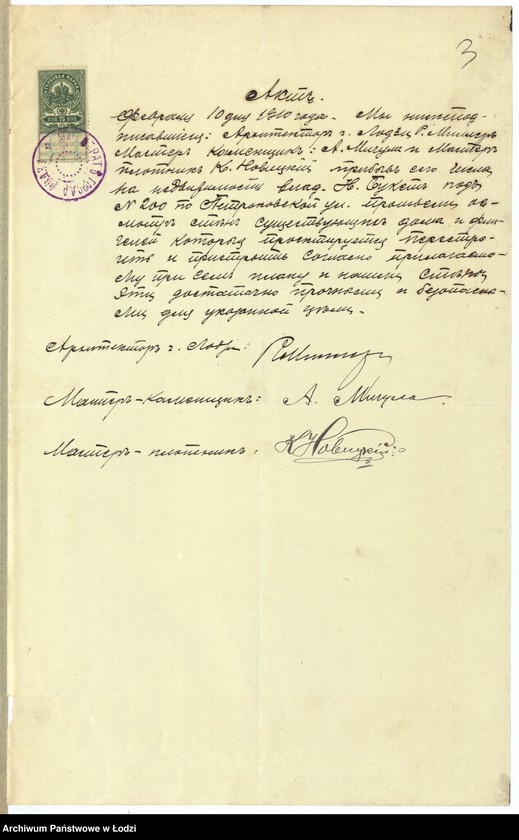 3
Актъ.
Февраля 10 дня 1910 года. Мы нижепод-
писавшіеся: Архитекторъ г. Лодзи Р. Миллеръ
Мастеръ Каменщикъ: А. Мигула и Мастеръ
плотникъ К. Новицкій прибывъ сего числа
на недвижимость влад. Н. Букетъ подъ
№ 200 по Петроковской ул. произвели ос-
мотръ стѣнъ существующихъ дома и фли-
гелей которыя проектируется перестро-
ить и пристроить согласно прилагаемо-
му при семъ плану и нашли стѣны
эти достаточно прочными и безопасны-
ми для указанной цѣли.
Архитекторъ г. Лодзи:
Мастеръ-Каменщикъ: А. Мигула
Мастеръ-плотникъ: К Новицкій
15 КОП
Archiwum Państwowe w Łodzi